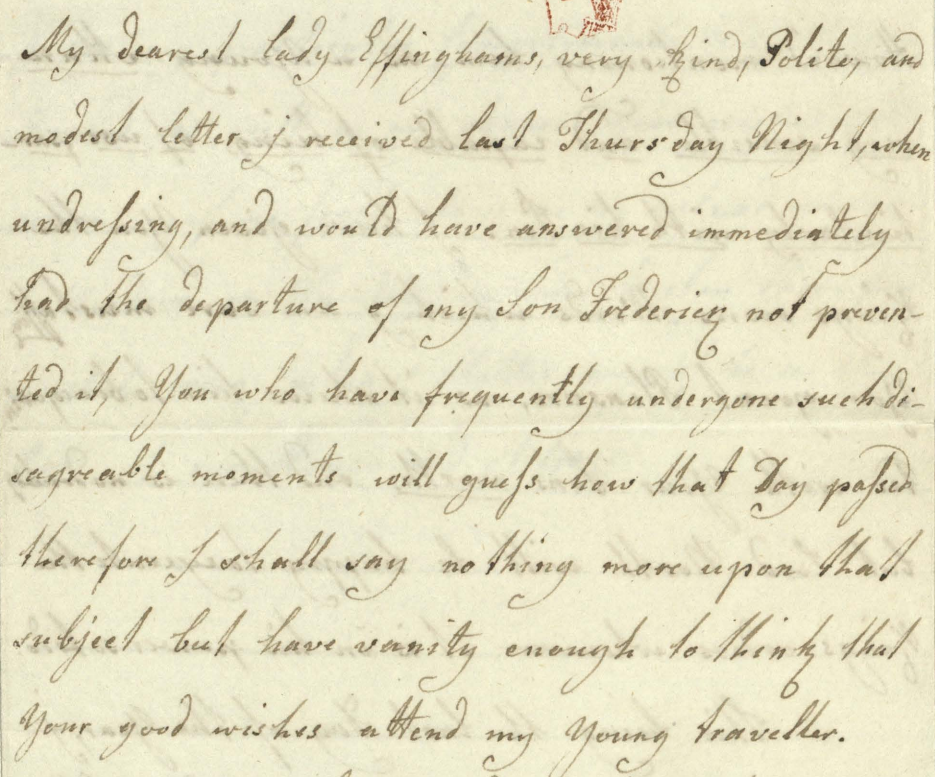 My dearest lady Effinghams, very kind, Polite, and
modest letter j received last Thursday Night, when
undreſsing, and would have answered immediately
had the departure of my Son Frederick not preven-
ted it, You who have frequently undergone such di-
sagreable moments will gueſs how that Day paſsed
therefore J shall say nothing more upon that
subject but have vanity enough to think that
Your good wishes attend my Young traveller.